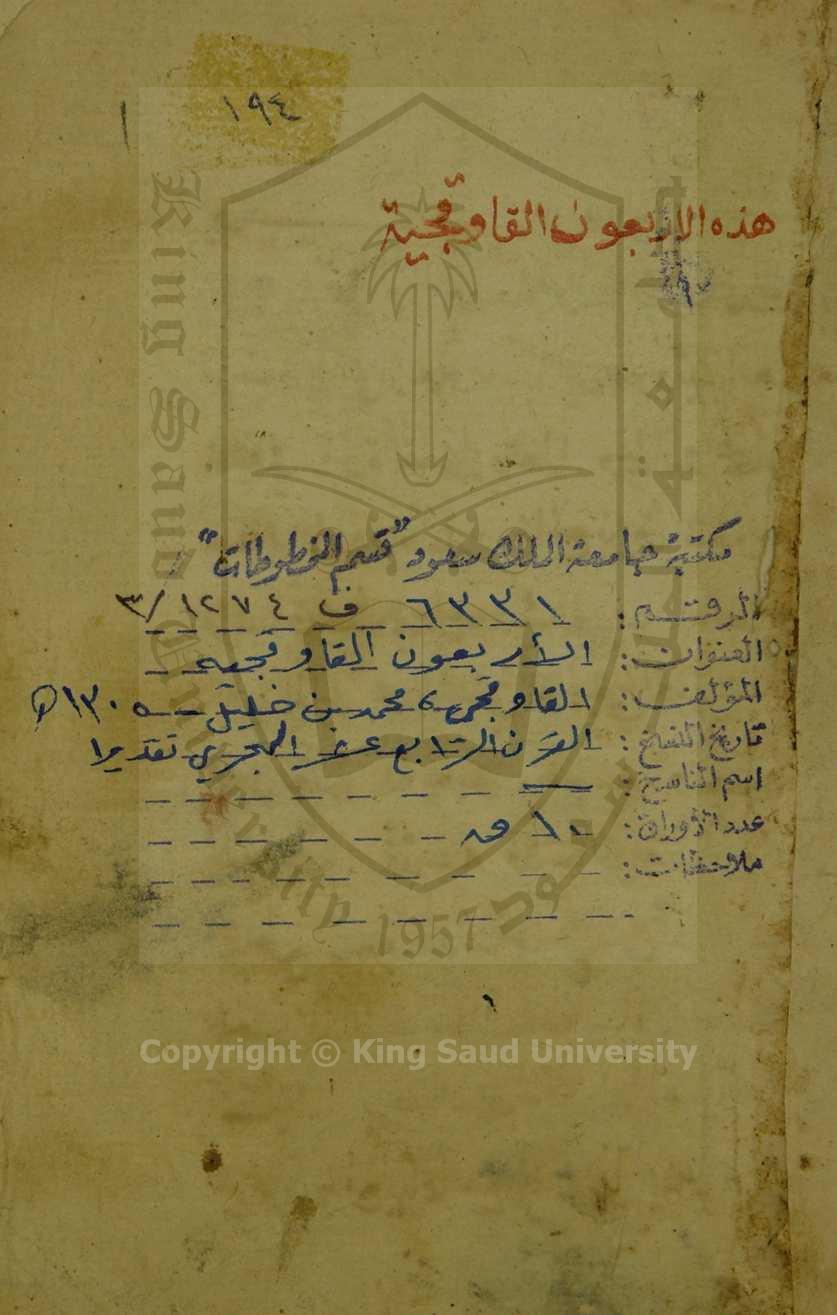 ١٩٤
هذه الاربعون القاوقجية
مكتبة جامعة الملك سعود "قسم المخطوطات"
الرقم: ٦٣٣١ ف ١٢٧٤/٣
العنوان: الأربعون القاوقجيه
المؤلف: القاوقجي، محمد بن خليل - ١٣٠٥هـ
تاريخ النسخ: القرن الرابع عشر الهجري تقديرا
اسم الناسخ:
عدد الأوراق: ١٠ ق
ملاحظات:
King Saud University
1957
Copyright © King Saud University